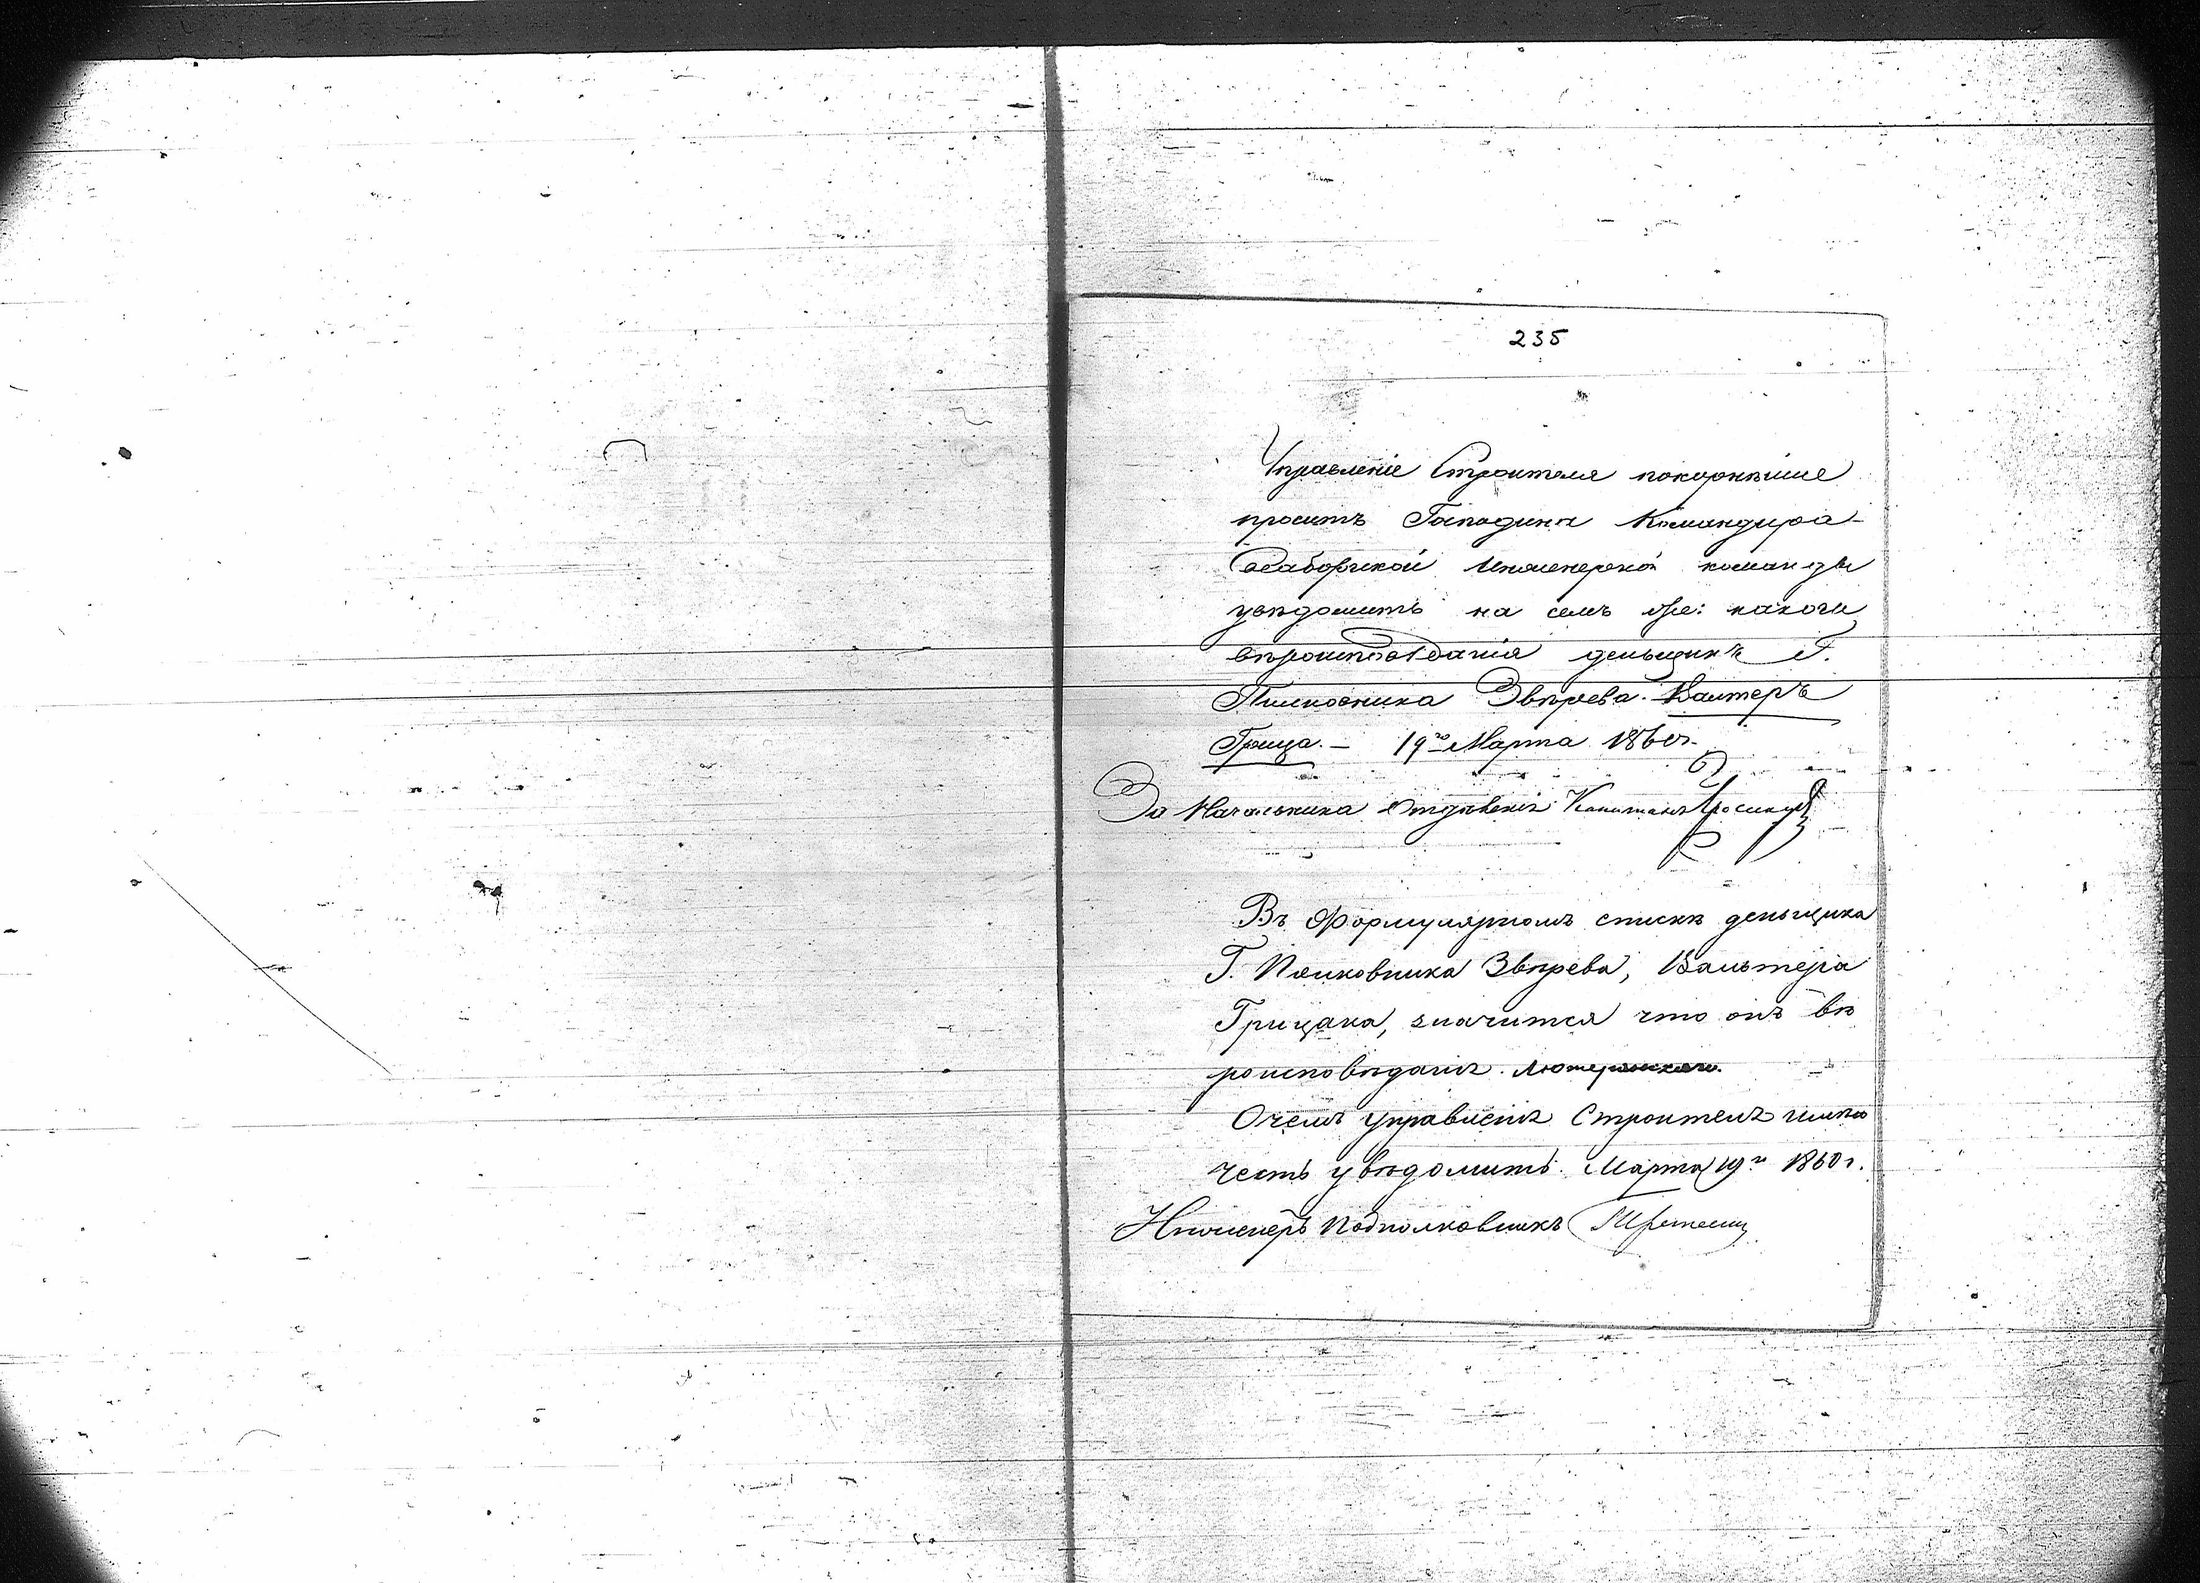 235
Управленіе Строителя покорнѣйше
проситъ Господина Командира
Свеаборгской Инженерной команды
увѣдомить на семъ же: какого
вѣроисповѣданія деньщикъ Г.
Полковника Звѣрева. Валтеръ
Грица. — 19го Марта 1860 г.
За Начальника Отдѣленія Капитанъ
Въ Формулярномъ спискѣ деньщика
Г. Полковника Звѣрева, Вальтера
Грицака, значится что онъ вѣ
роисповѣданія Лютеранскаго.
Очемъ управленіе Строителя имѣю
честь увѣдомить. Марта 19го 1860 г.
Инженеръ Подполковникъ